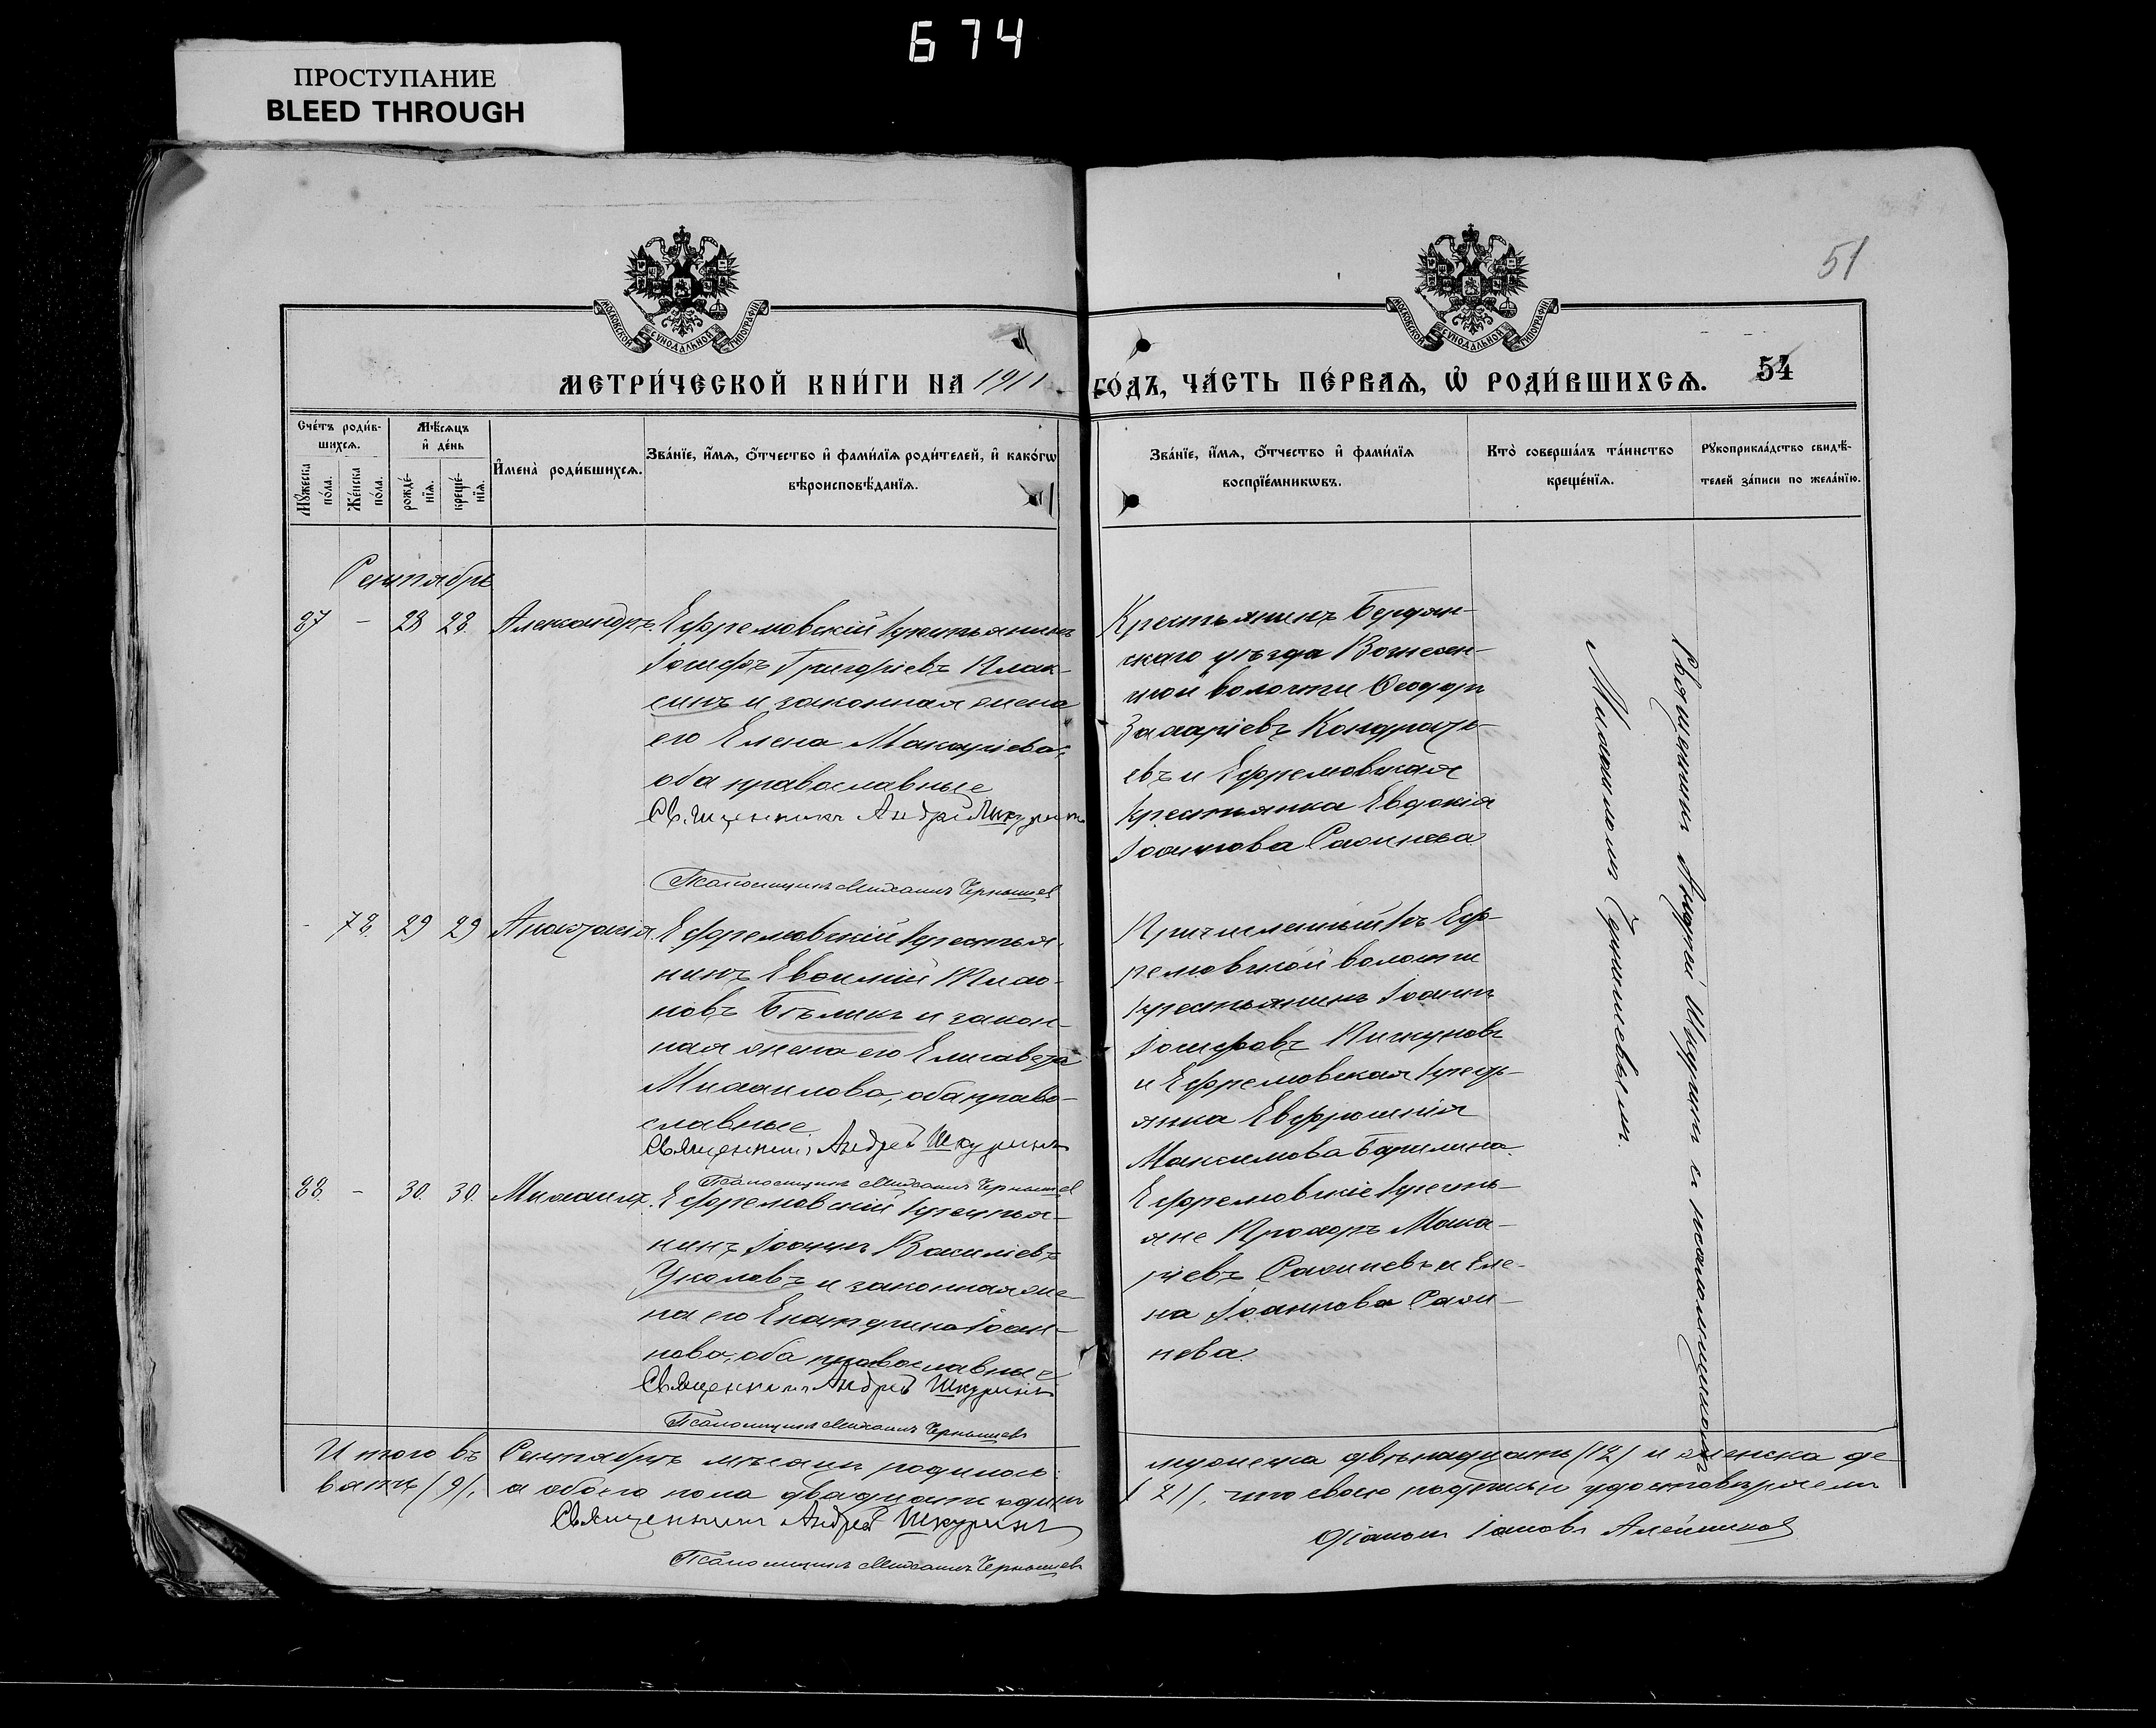 674
ПРОСТУПАНИЕ
BLEED THROUGH
51
МОСКОВСКОЙ СѴНОДАЛЬНОЙ ТИПОГРАФІИ
МОСКОВСКОЙ СѴНОДАЛЬНОЙ ТИПОГРАФІИ
МЕТРИ́ЧЕСКОЙ КНИ́ГИ НА 1911 ГО́ДЪ, ЧА́СТЬ ПЕ́РВАѦ, Ѡ҆ РОДИ́ВШИХСѦ. 54
Сче́тъ роди́в-
шихсѧ.
Мꙋ́жеска по́ла.
Же́нска по́ла.
Мѣ́сѧцъ
и҆ де́нь
рожде́-
нїѧ.
креще́-
нїѧ.
И҆мена̀ роди́вшихсѧ.
Зва́нїе, и҆́мѧ, ѻ҆́тчество и҆ фами́лїѧ роди́телей, и҆ како́гѡ
вѣроисповѣ́данїѧ.
Зва́нїе, и҆́мѧ, ѻ҆́тчество и҆ фами́лїѧ
воспрїе́мникѡвъ.
Кто̀ соверша́лъ та́инство
креще́нїѧ.
Рꙋкоприкла́дство свидѣ́-
телей за́писи по жела́нїю.
Сентябрь
27 - 28 28. Александръ. Ефремовскій крестьянинъ
Іосифъ Григоріевъ Плак-
синъ и законная жена
его Елена Макаріева,
оба православные
Священникъ Андрей Шкуринъ
Псаломщикъ Михаилъ Чернышев
Крестьянинъ Бердян-
скаго уѣзда Вознесен-
ской волости Ѳеодоръ
Захаріевъ Кондрать-
евъ и Ефремовская
крестьянка Евдокія
Іоаннова
- 72. 29 29 Анастасія. Ефремовскій крестья-
нинъ Евѳимій
новъ Бѣликъ и закон-
ная жена его Елисавета
Михаилова, оба право-
славные
Священникъ Андрей Шкуринъ
Псаломщикъ Михаилъ Чернышев
Причисленный къ Еф-
ремовской волости
крестьянинъ Іоаннъ
Іосифовъ Пискуновъ
и Ефремовская кресть-
янка Евфросинія
Максимова
28. - 30. 30. Михаилъ. Ефремовскій крестья-
нинъ Іоаннъ Василіевъ
Уколовъ и законная же-
на его Екатерина Іоан-
нова, оба православные
Священникъ Андрей Шкуринъ
Псаломщикъ Михаилъ Чернышевъ
Ефремовскіе кресть-
яне Прохоръ Мака-
ріевъ и Еле-
на Іоаннова
нева.
Священникъ Андрей Шкуринъ съ псаломщикомъ
Михаиломъ Чернышевымъ.
Итого въ Сентябрѣ мѣсяцѣ родилось: мужеска двѣнадцать (12) и женска де-
вять (9), а обоего пола двадцать одинъ (21), что своею подписью удостовѣряемъ
Священникъ Андрей Шкуринъ
Діаконъ Алейников
Псаломщикъ Михаилъ Чернышевъ